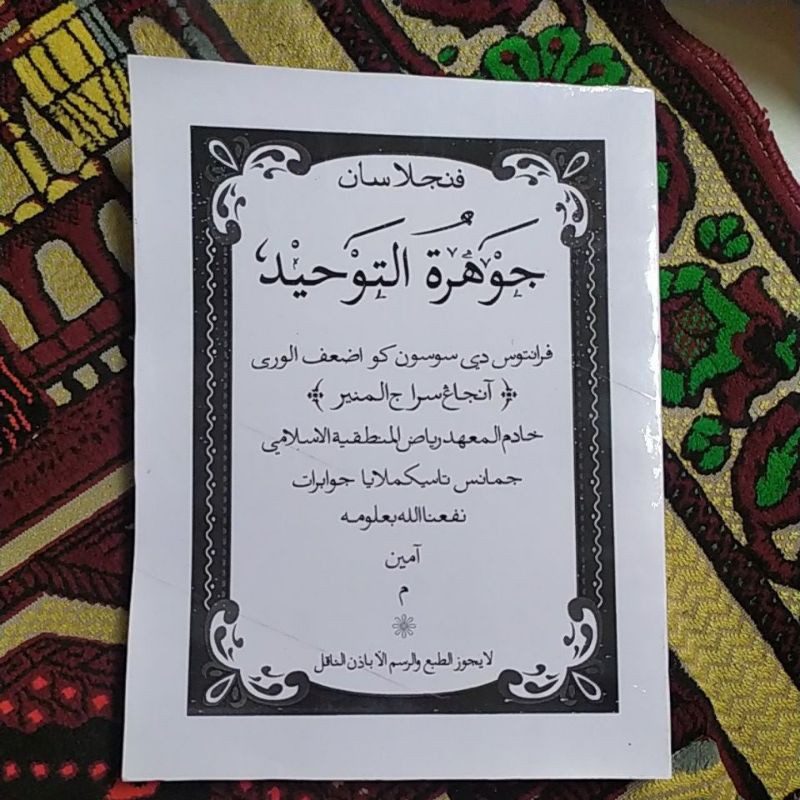 فنجلاسان
جَوْهَرَةُ التَّوْحِيْدِ
فرانتوس دي سوسون كو اضعف الورى
﴿ آنجاڠ سراج المنير ﴾
خادم المعهد رياض المنطقية الاسلامي
جمانس تاسيكملايا جوابرات
نفعنا الله بعلومه
آمين
م
لا يجوز الطبع والرسم الا باذن الناقل